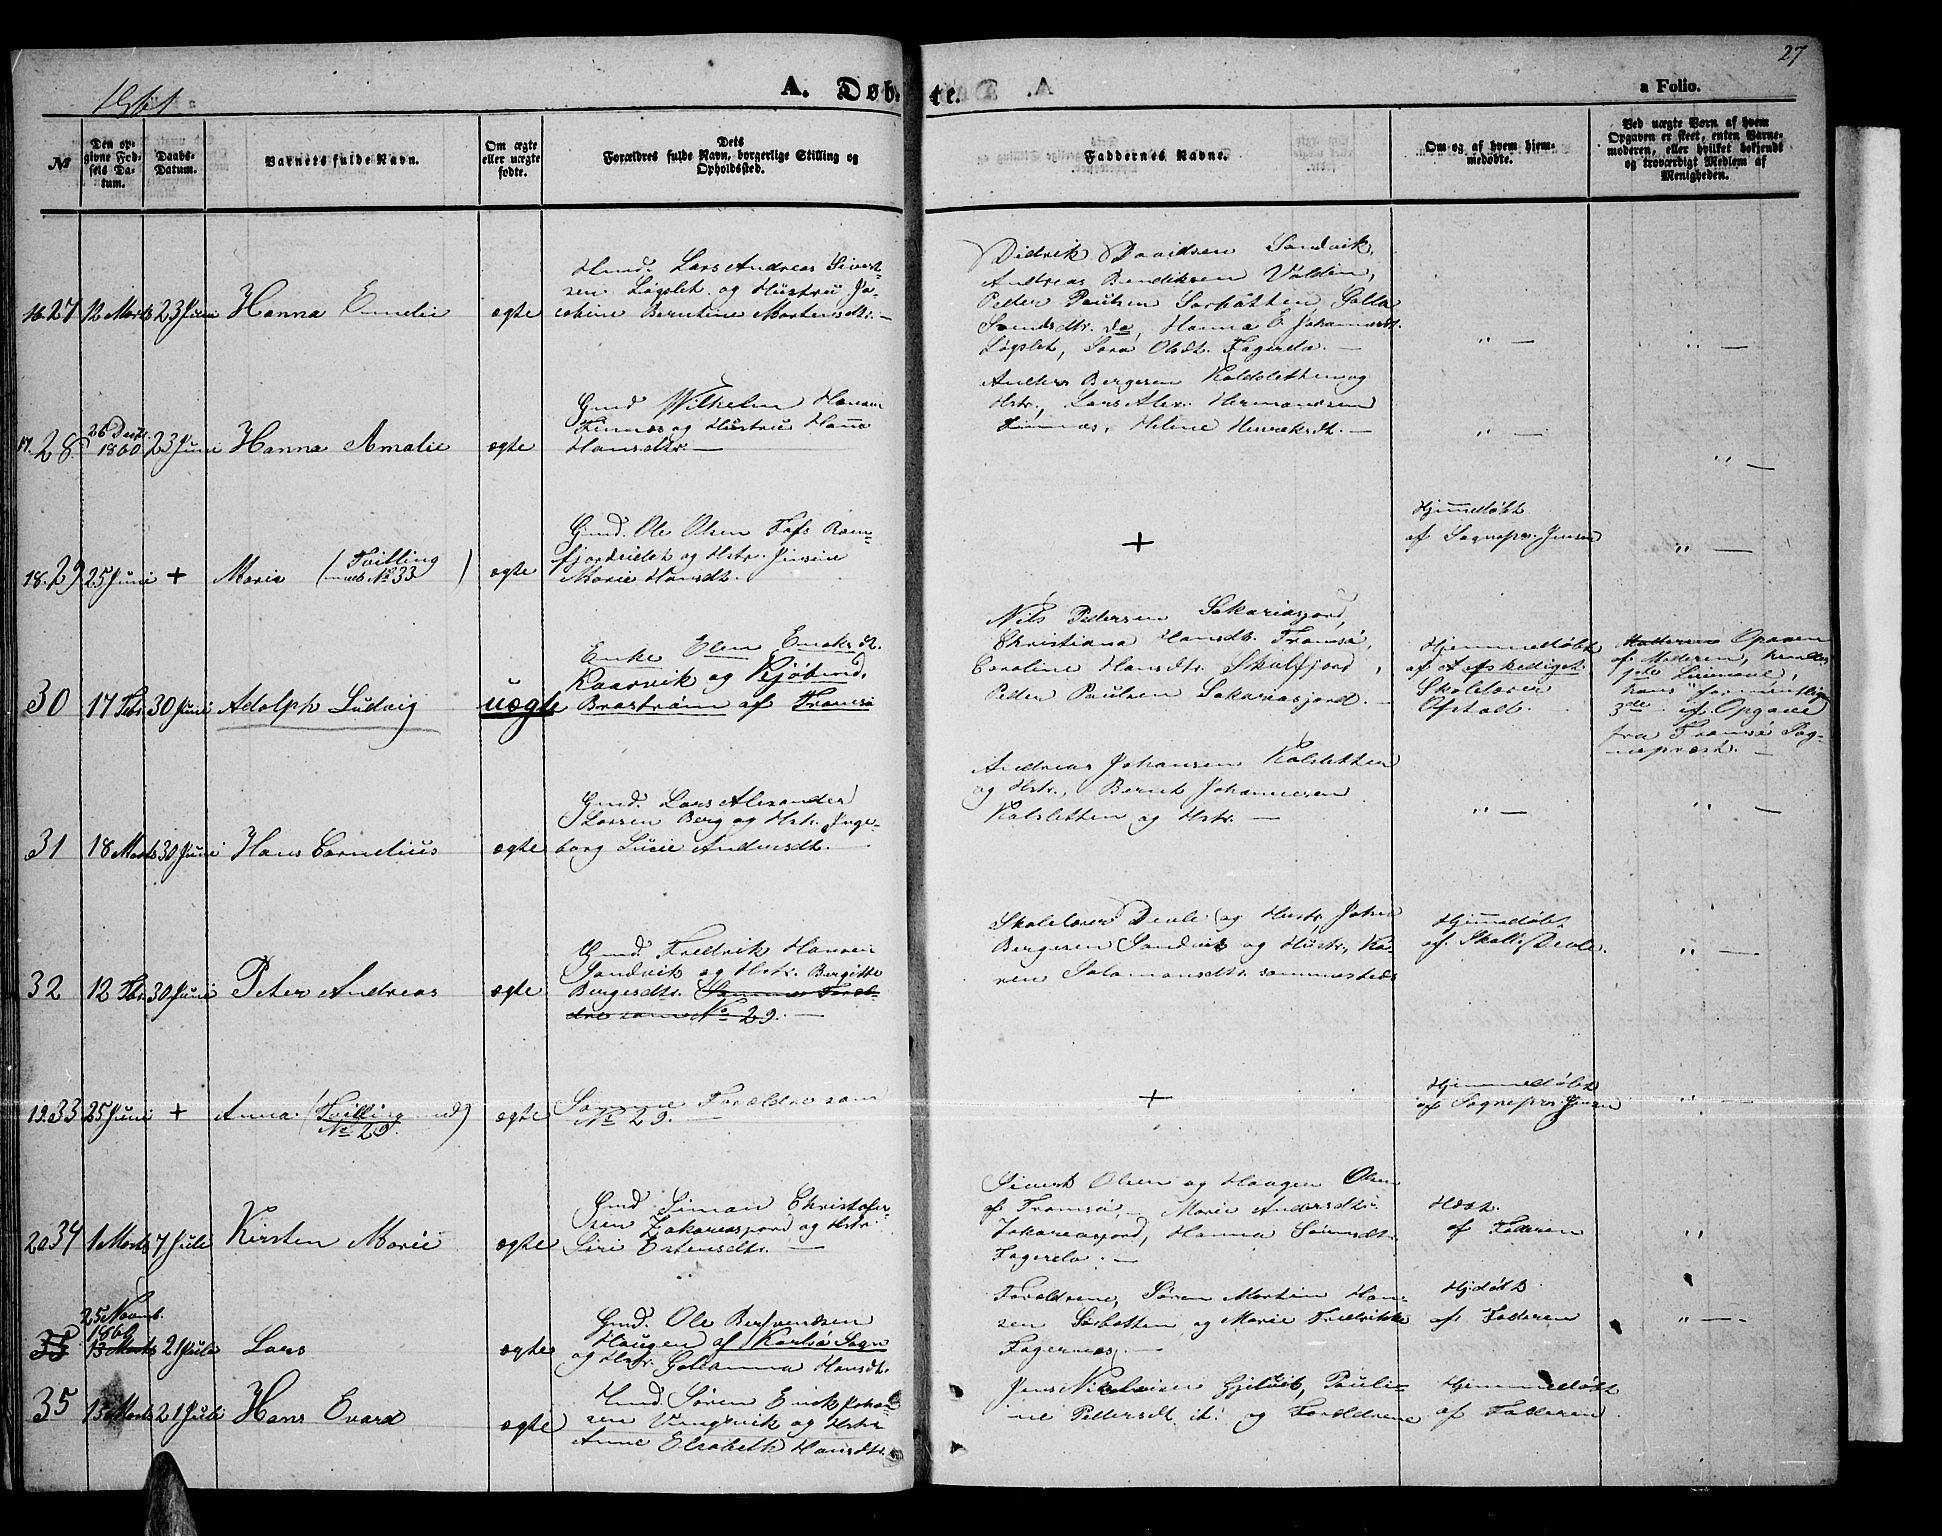 1861
A. Døb-
te.
27
a Folio.
№
Den op-
givne Fød-
sels Da-
tum.
Daabs-
Datum.
Barnets fulde Navn.
Om ægte
eller uægte
fødte.
Dets
Forældres fulde Navn, borgerlige Stilling og
Opholdssted.
Faddernes Navne.
Om og af hvem hjem-
medøbte.
Ved uægte Børn af hvem
Opgaven er skeet, enten Barne-
moderen, eller hvilket bekjendt
og troværdigt Medlem af
Menigheden.
16. 27
12 Marts
23 Juni
Hanna Emelie
ægte
Lars Andreas Sivert-
sen Løgslet og Hustru Ja-
cobine Berntine Mortensdtr. —
Didrik Davidsen Sandvik,
Andreas Bendiksen
Peder Paulsen Sørbotten
Svendsdtr. do, Hanna E. Johannesdt.
Løgslet, Sara Olsdt. —
" —
" —
17. 28
26 Decbr.
1860
23 Juni
Hanna Amalie
ægte
Gmd Wilhelm Hansen
og Hustru Hanna
Hansdtr. —
Anders Bergersen Kaldsletten og
Hstr., Lars Alex. Hermandsen
Helene —
" —
" —
18. 29
25 Juni
+
Marie (Tvilling
med No 33)
ægte
Gmd. Ole Olsen Ram-
fjordeidet og Hstr. Jensine
Marie Hansdt.
+
Hjemmedøbt
af Sognepr. Jensen
" —
30
17 Febr
30 Juni
Adolph Ludvig
uægte
Enke Elen
Kaarvik og Kjøbmd.
Brostrøm af Tromsø
Nils Pedersen Sakariasjord,
Christiana Hansdt. Tromsø,
Caroline Hansdtr. Skulsfjord,
Peder Paulsen Sakariasjord. —
Hjemmedøbt
af Afskediget
Skolelærer
Opgaven
af Moderen, hendes
hans formentlige
3die ef. Opgave
fra Tromsø Sog-
nepræst. —
31
18 Marts
30 Juni
Hans Cornelius
ægte
Gmd. Lars Alexander
Larsen Berg og Hstr. Inge-
borg Lucie Andersdt.
Andreas Johansen Kalsletten
og Hstr., Bernt Johannesen
Kalsletten og Hstr. —
" —
" —
32
12 Fbr
30 Juni
Peter Andreas
ægte
Gmd. Fredrik Hansen
Sandvik og Hstr. Bergitte
Bergersdtr. Samme Foræl-
dre som No 29. —
Skolelærer og Hustr., Johan
Bergersen Sandvik og Hustr., Ka-
ren Salamonsdtr. sammesteds
Hjemmedøbt
af
" —
19. 33
25 Juni
+
Anna (Tvilling med
No 29.)
ægte
Samme Forældre som
No 29. —
+
Hjemmedøbt
af Sognepr. Jensen
" —
20. 34
1 Marts
7 Juli
Kirsten Marie
ægte
Gmd Simon Christofer-
sen Zakariasjord og Hstr.
Siri Estensdtr. —
Sivert Olsen og Haagen Olsen
af Tromsø, Marie Andersdtr.
Zakariasjord, Hanna
—
Hdbt.
af Faderen
"
35
25 Novmb.
1860
13 Marts
21 Juli
Lars
ægte
Gmd. Ole Berntsen
Haugen af Karlsø Sogn
og Hstr. Johanna Hansdt.
Forældrene, Søren Martin Han-
sen Sørbotten og Marie Fredrikke
Fagernes. —
Hjdøbt
af Faderen
" —
35
13 Marts
21 Juli
Hans Evard
ægte
Søren Erik Johan-
sen Vengsvik og Hstr
Anne Elisabeth Hansdtr.
Jens Nikolaisen Pauli-
ne Pedersdt. it. og Forældrene
Hjemmedøbt
af Faderen